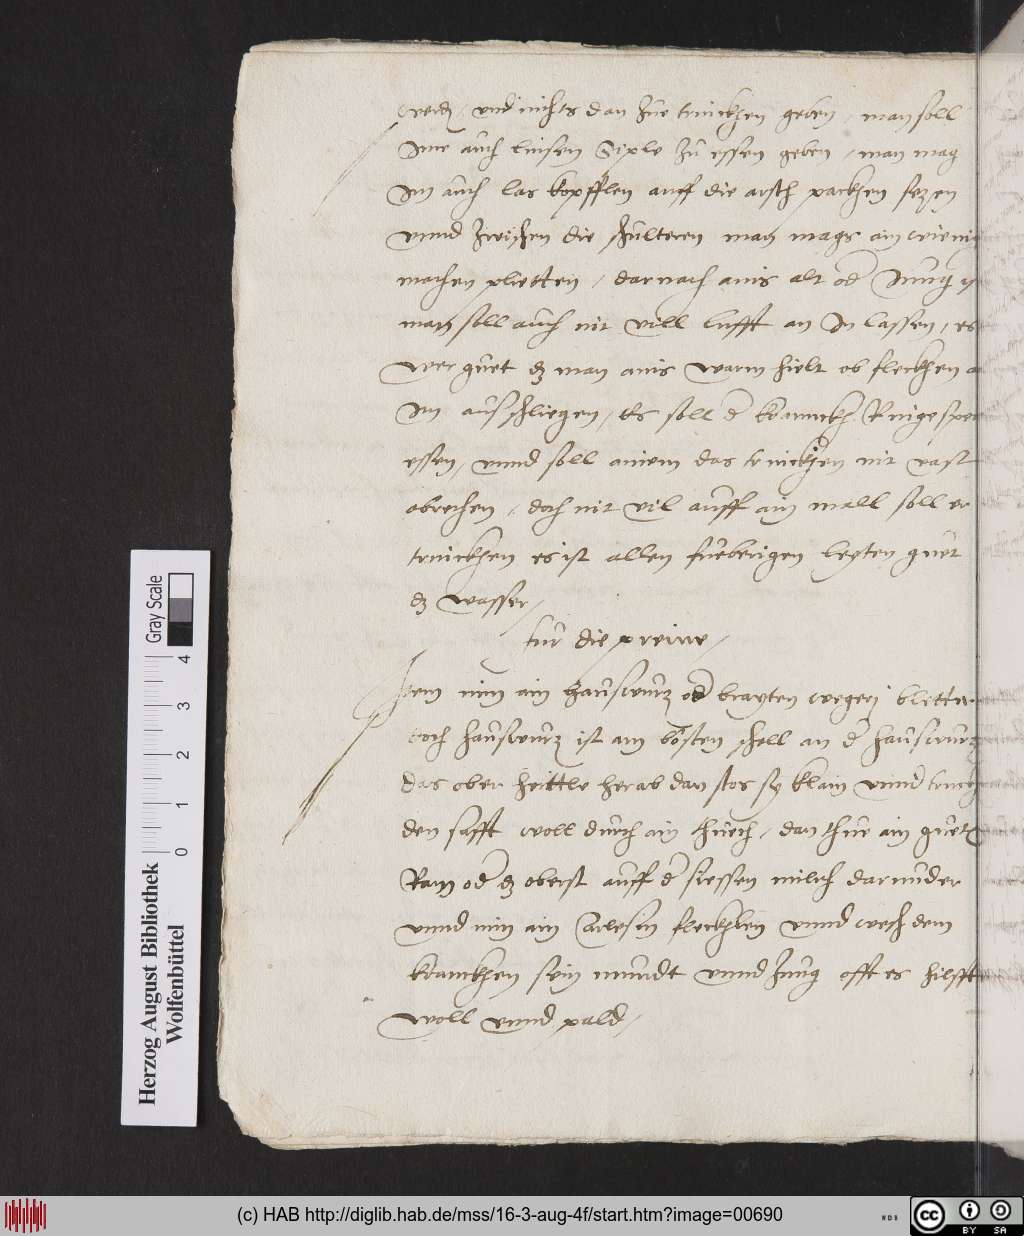 werd, und nichts dan zue trinckhen geben, man soll
Ime auch linsen Siple zu essen geben, man mag
Im auch las köpfflen auff die arsch packhen sezen
unnd zwischen die schulteren man mags ain wienig
machen plietten, darnach ainis alt od Jung
man soll auch nit vill lufft an In lassen, es
wer guet dz man ainis warm hielt ob fleckhen
Im aus schliegen, Es soll d kranckh Ringe
essen, unnd soll ainem das trinckhen nit vast
abrechen, doch nit vil auff ain mall soll er
trinckhen es ist allen fieberigen leyten guet
dz wasser,
für die preine,
Item nim ain hauswurz od brayten wegerj bletter
doch hauswurz ist am bösten schell an d hauswurz
das ober heittle herab dan stos sy klain unnd truckh
den safft woll durch ain thuech, dan thue ain guetz
Ram od dz oberst auff d siessen milch darunder
unnd nim ain fleckhlen unnd wesh dem
kranckhen sein mundt unnd zung offt es hilfft
woll unnd pald,
Herzog August Bibliothek
Wolfenbüttel
0 1 2 3 4
Gray Scale
(c) HAB http://diglib.hab.de/mss/16-3-aug-4f/start.htm?image=00690
WDB
cc BY SA